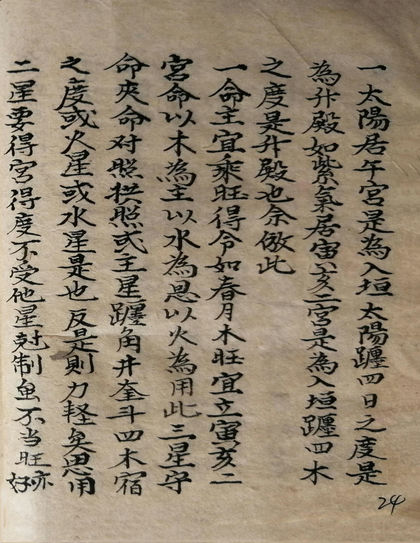 一太陽居午宮是為入垣太陽躔四日之度是
為升殿如紫氣居寅亥二宮是為入垣躔四木
之度是升殿也余倣此
一命主宜乘旺得令如春月木旺宜立寅亥二
宮命以木為主以水為恩以火為用此三星守
命夾命对照拱照或主星躔角井奎斗四木宿
之度或火星或水星是也反是則力轻矣恩用
二星要得宮得度不受他星尅制虽不当旺亦好
24